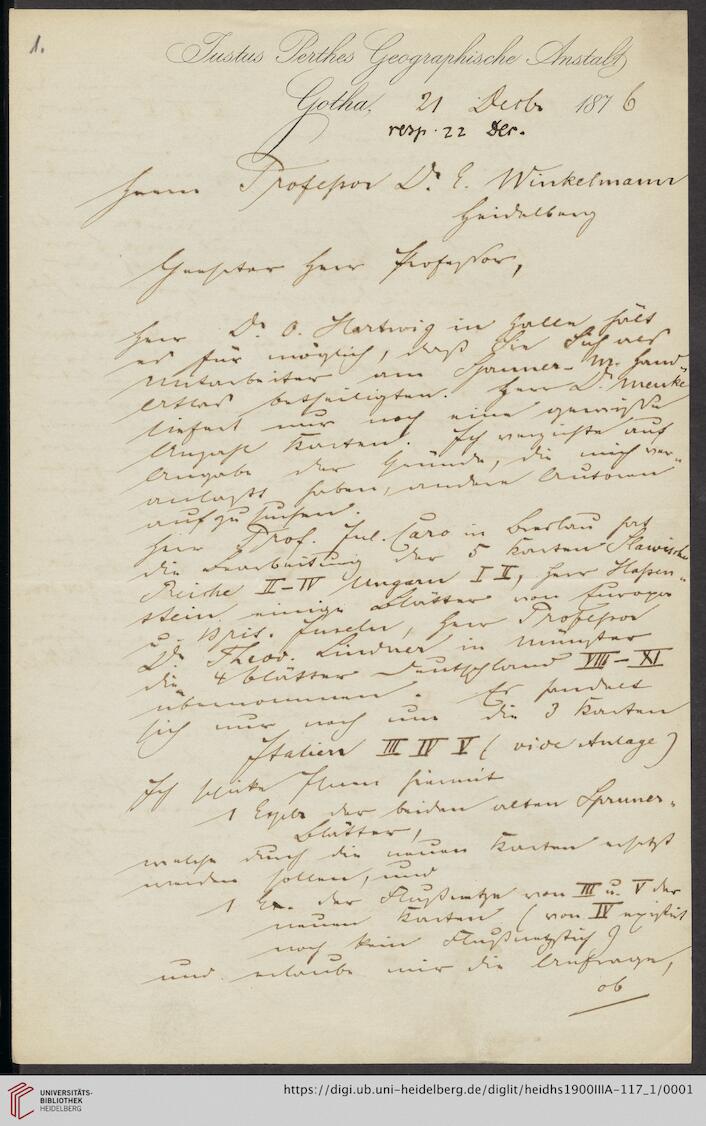 1.
Justus Perthes Geographische Anstalt
Gotha, 21 Decbr 1876
resp. 22 Dec.
Herrn Professor Dr. E. Winkelmann
Heidelberg
Geehrter Herr Professor,
Herr Dr. O. Hartwig in Halle hält
es für möglich, daß Sie Sich als
Mitarbeiter am Spruner-M. Hand-
Atlas betheiligten. Herr Dr. Menke
liefert nur noch eine gewisse
Anzahl Karten. Ich verzichte auf
Angabe der Gründe, die mich ver-
anlaßt haben, andere Autoren
aufzusuchen.
Herr Prof. Jul. Caro in Breslau hat
die Bearbeitung der 5 Karten Slawische
Reiche II–IV Ungarn I II, Herr Hassen-
stein einige Blätter von Europa
u. Brit. Inseln, Herr Professor
Dr. Theod. Lindner in Münster
die 4 Blätter Deutschland VIII–XI
übernommen. Es handelt
sich nur noch um die 3 Karten
Italien III IV V (vide Anlage)
Ich schicke Ihnen hiermit
1 Explr der beiden alten Spruner-
Blätter,
welche durch die neuen Karten ersetzt
werden sollen, und
1 Ex. der Flußnetze von III u. V der
neuen Karten (von IV existirt
noch kein Flußnetzstich)
und erlaube mir die Anfrage,
ob
UNIVERSITÄTS-
BIBLIOTHEK
HEIDELBERG
https://digi.ub.uni-heidelberg.de/diglit/heidhs1900IIIA-117_1/0001